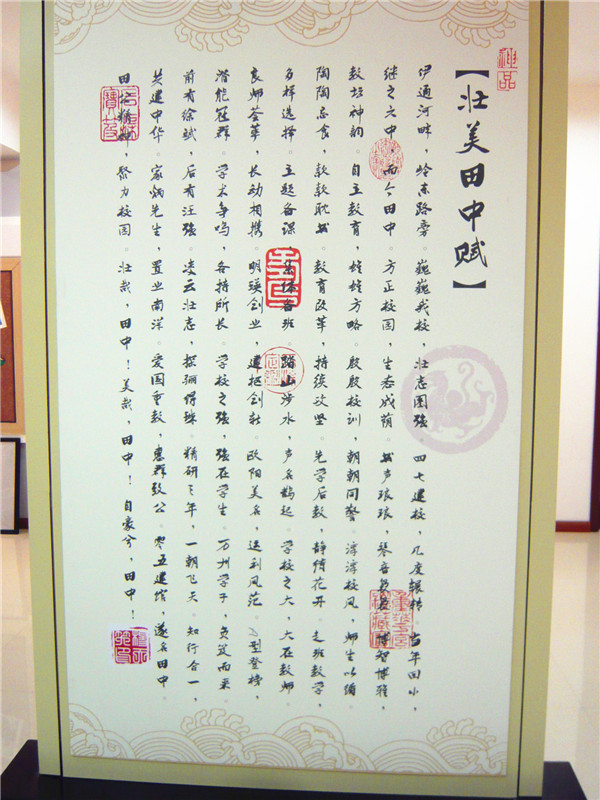 【壮美田中赋】
伊通河畔，岭东路旁。巍巍我校，壮志图强。四七建校，几度辗转。当年回小，
继之六中，而今田中。方正校园，生态成荫。书声琅琅，琴音袅袅。博智博雅，
教坛神韵。自主教育，煌煌方略。殷殷校训，朝朝同警。淳淳校风，师生以循
陶陶忘食，款款耽书。教育改革，持续攻坚。先学后教，静待花开。走班教学，
多样选择。主题备课，集体备班。踏山涉水，声名鹊起。学校之大，大在教师
良师荟萃，长幼相携。明瑛创业，建杞创新。欧阳美名，送利风范。型登榜，
潜能冠群。学术争鸣，各持所长。学校之强，强在学生。万州学子，负笈而来
前有徐斌，后有汪强。凌云壮志，探骊得珠。精研三年，一朝飞天。知行合一，
共建中华。家炳先生，置业南洋。爱国重教，惠群致公。零五建馆，遂名田中。
田精神，聚力校园。壮哉，田中！美哉，田中！自豪兮，田中！
神品